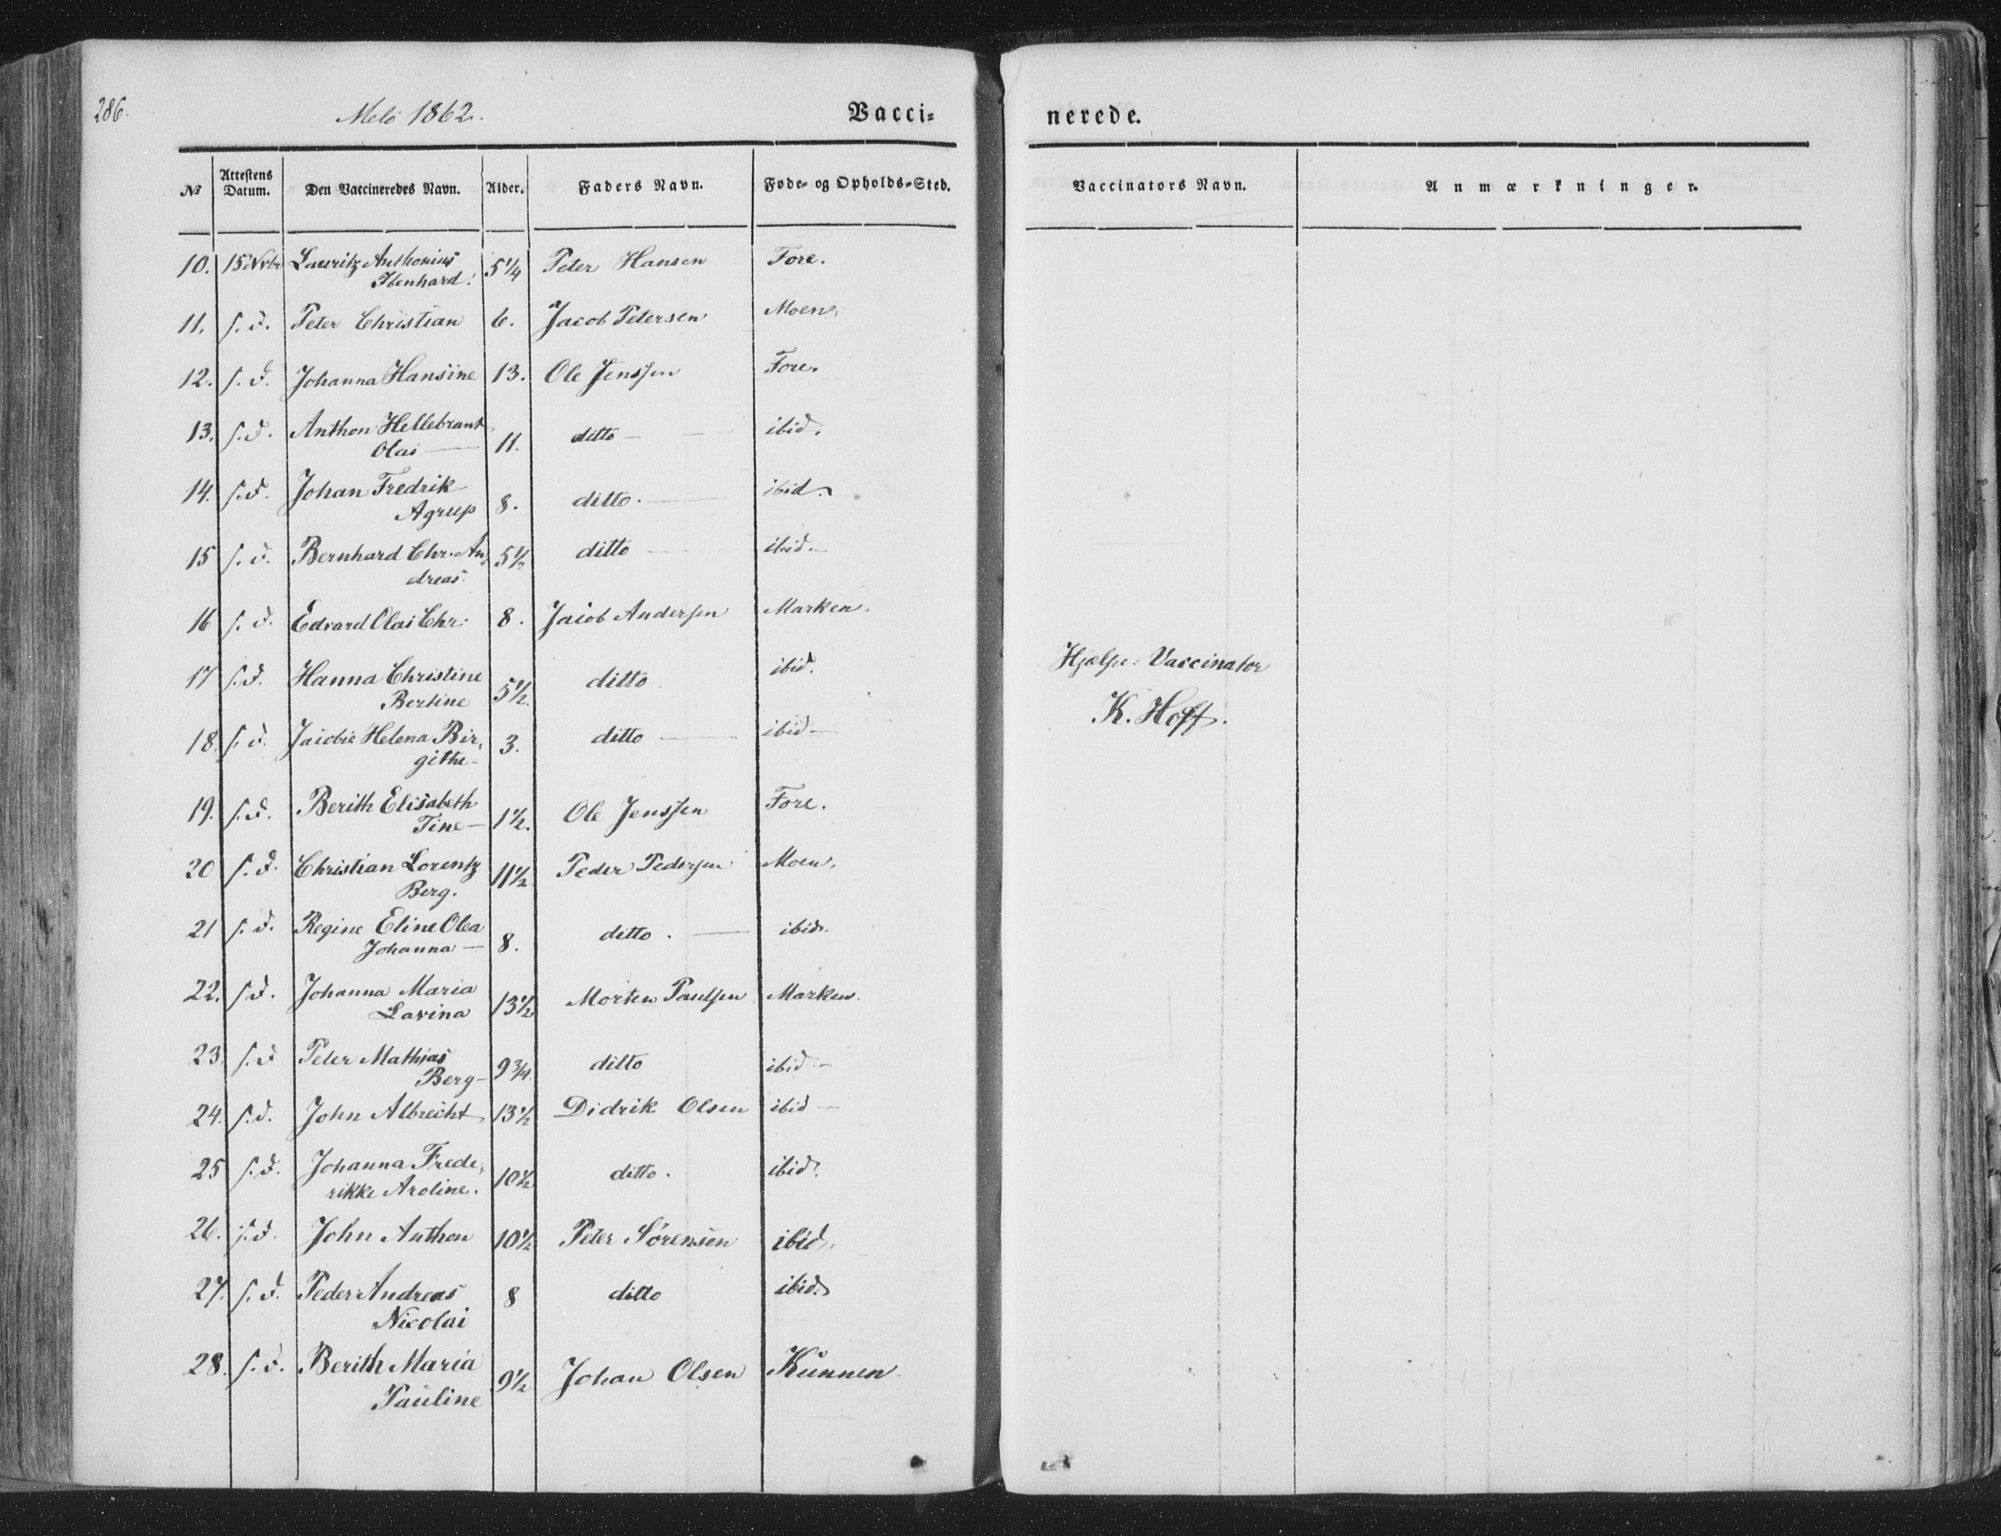 286.
Melö 1862.
Vacci=
nerede.
№ Attestens Datum. Den Vaccineredes Navn. Alder. Faders Navn. Føde- og Opholds-Sted. Vaccinators Navn. Anmærkninger.
10. 15 Nvbr Lauritz Anthonius 5 1/4 Peter Hansen Fore.
Ibenhard.
11. s. d. Peter Christian 6. Jacob Petersen Moen.
12. s. d. Johanna Hansine 13. Ole Jenssen Fore.
13. s. d. Anthon Hellebrant 11. ditto — ibid.
Olai —
14. s. d. Johan Fredrik 8. ditto. — ibid.
Agrup
15 s. d. Bernhard Chr. An, 5 1/2 ditto — ibid. —
dreas.
16 s. d. Edvard Olai Chr. 8. Jacob Andersen Marken.
17 s. d. Hanna Christine 5 1/2. ditto ibid.
Bertine
18. s. d. Jacobie Helena Bir, 3. ditto — ibid —
githe —
19. s. d. Berith Elisabeth 1 1/2. Ole Jenssen Fore.
Tine —
20 s. d. Christian Lorentz 11 1/2 Peder Pedersen Moen.
Berg.
21 s. d. Regine Eline Olea 8. ditto. — ibid.
Johanna —
22. s. d. Johanna Maria 13 1/2 Morten Paulsen Marken.
Lavina
23. s. d Peter Mathias 9 3/4. ditto ibid —
Berg —
24. s. d. John Albrecht 13 1/2 Didrik Olsen ibid —
25 s. d. Johanna Frede, 10 1/2 ditto. ibid.
rikke Aroline.
26. s. d. John Anthon 10 1/2 Peter Sørensen ibid.
27. s. d. Peder Andreas 8 ditto ibid.
Nicolai
28. s. d. Berith Maria 9 1/2 Johan Olsen Kunnen
Pauline
Hjælpe-Vaccinator
K. Hoff.